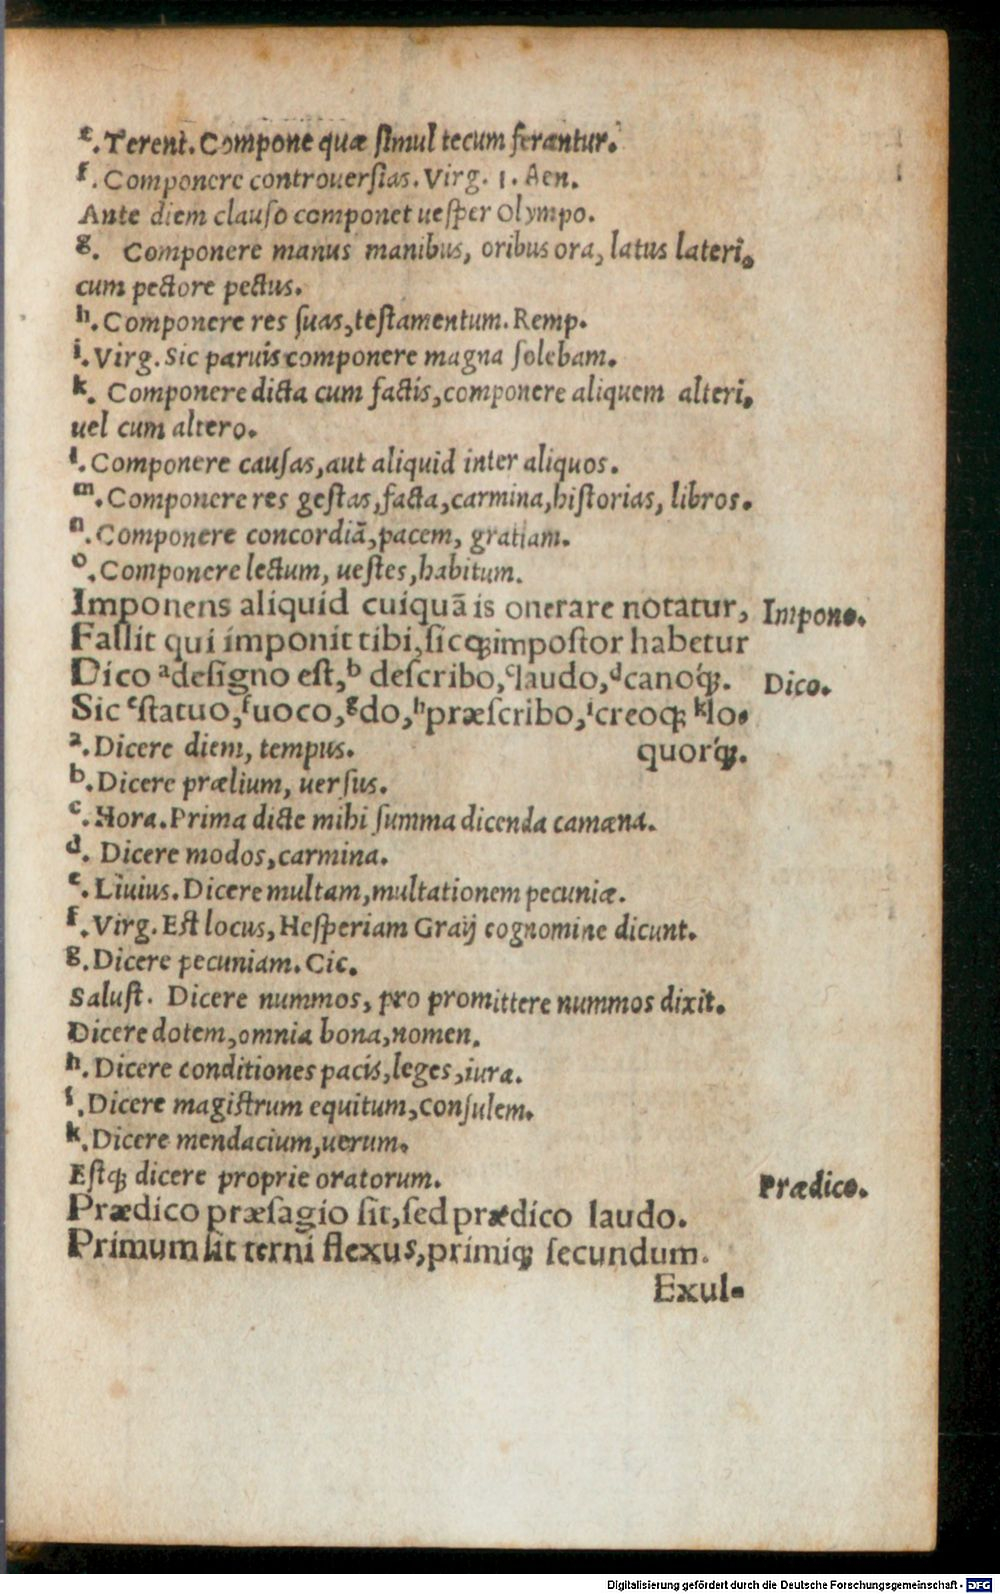 e. Terent. Compone quæ simul tecum ferantur.
f. Componere controuersias. Virg. 1. Aen.
Ante diem clauso componet uesper Olympo.
g. Componere manus manibus, oribus ora, latus lateri,
cum pectore pectus.
h. Componere res suas, testamentum. Remp.
i. Virg. Sic paruis componere magna solebam.
k. Componere dicta cum factis, componere aliquem alteri,
uel cum altero.
l. Componere causas, aut aliquid inter aliquos.
m. Componere res gestas, facta, carmina, historias, libros.
n. Componere concordiã, pacem, gratiam.
o. Componere lectum, uestes, habitum.
Imponens aliquid cuiquã is onerare notatur, Impono.
Fallit qui imponit tibi, sicq; impostor habetur
Dico ᵃdesigno est, ᵇ describo, ᶜlaudo, ᵈcanoq́;. Dico.
Sic ᵉstatuo, ᶠuoco, ᵍdo, ʰpræscribo, ⁱcreoq; ᵏlo-
a. Dicere diem, tempus. quorq́;.
b. Dicere prælium, uersus.
c. Hora. Prima dicte mihi summa dicenda camæna.
d. Dicere modos, carmina.
e. Liuius. Dicere multam, multationem pecuniæ.
f. Virg. Est locus, Hesperiam Graij cognomine dicunt.
g. Dicere pecuniam. Cic.
Salust. Dicere nummos, pro promittere nummos dixit.
Dicere dotem, omnia bona, nomen.
h. Dicere conditiones pacis, leges, iura.
i. Dicere magistrum equitum, consulem.
k. Dicere mendacium, uerum.
Estq; dicere proprie oratorum.
Prædico.
Prædico præsagio sit, sed prædico laudo.
Primum sit terni flexus, primiq; secundum.
Exul-
Digitalisierung gefördert durch die Deutsche Forschungsgemeinschaft - DFG